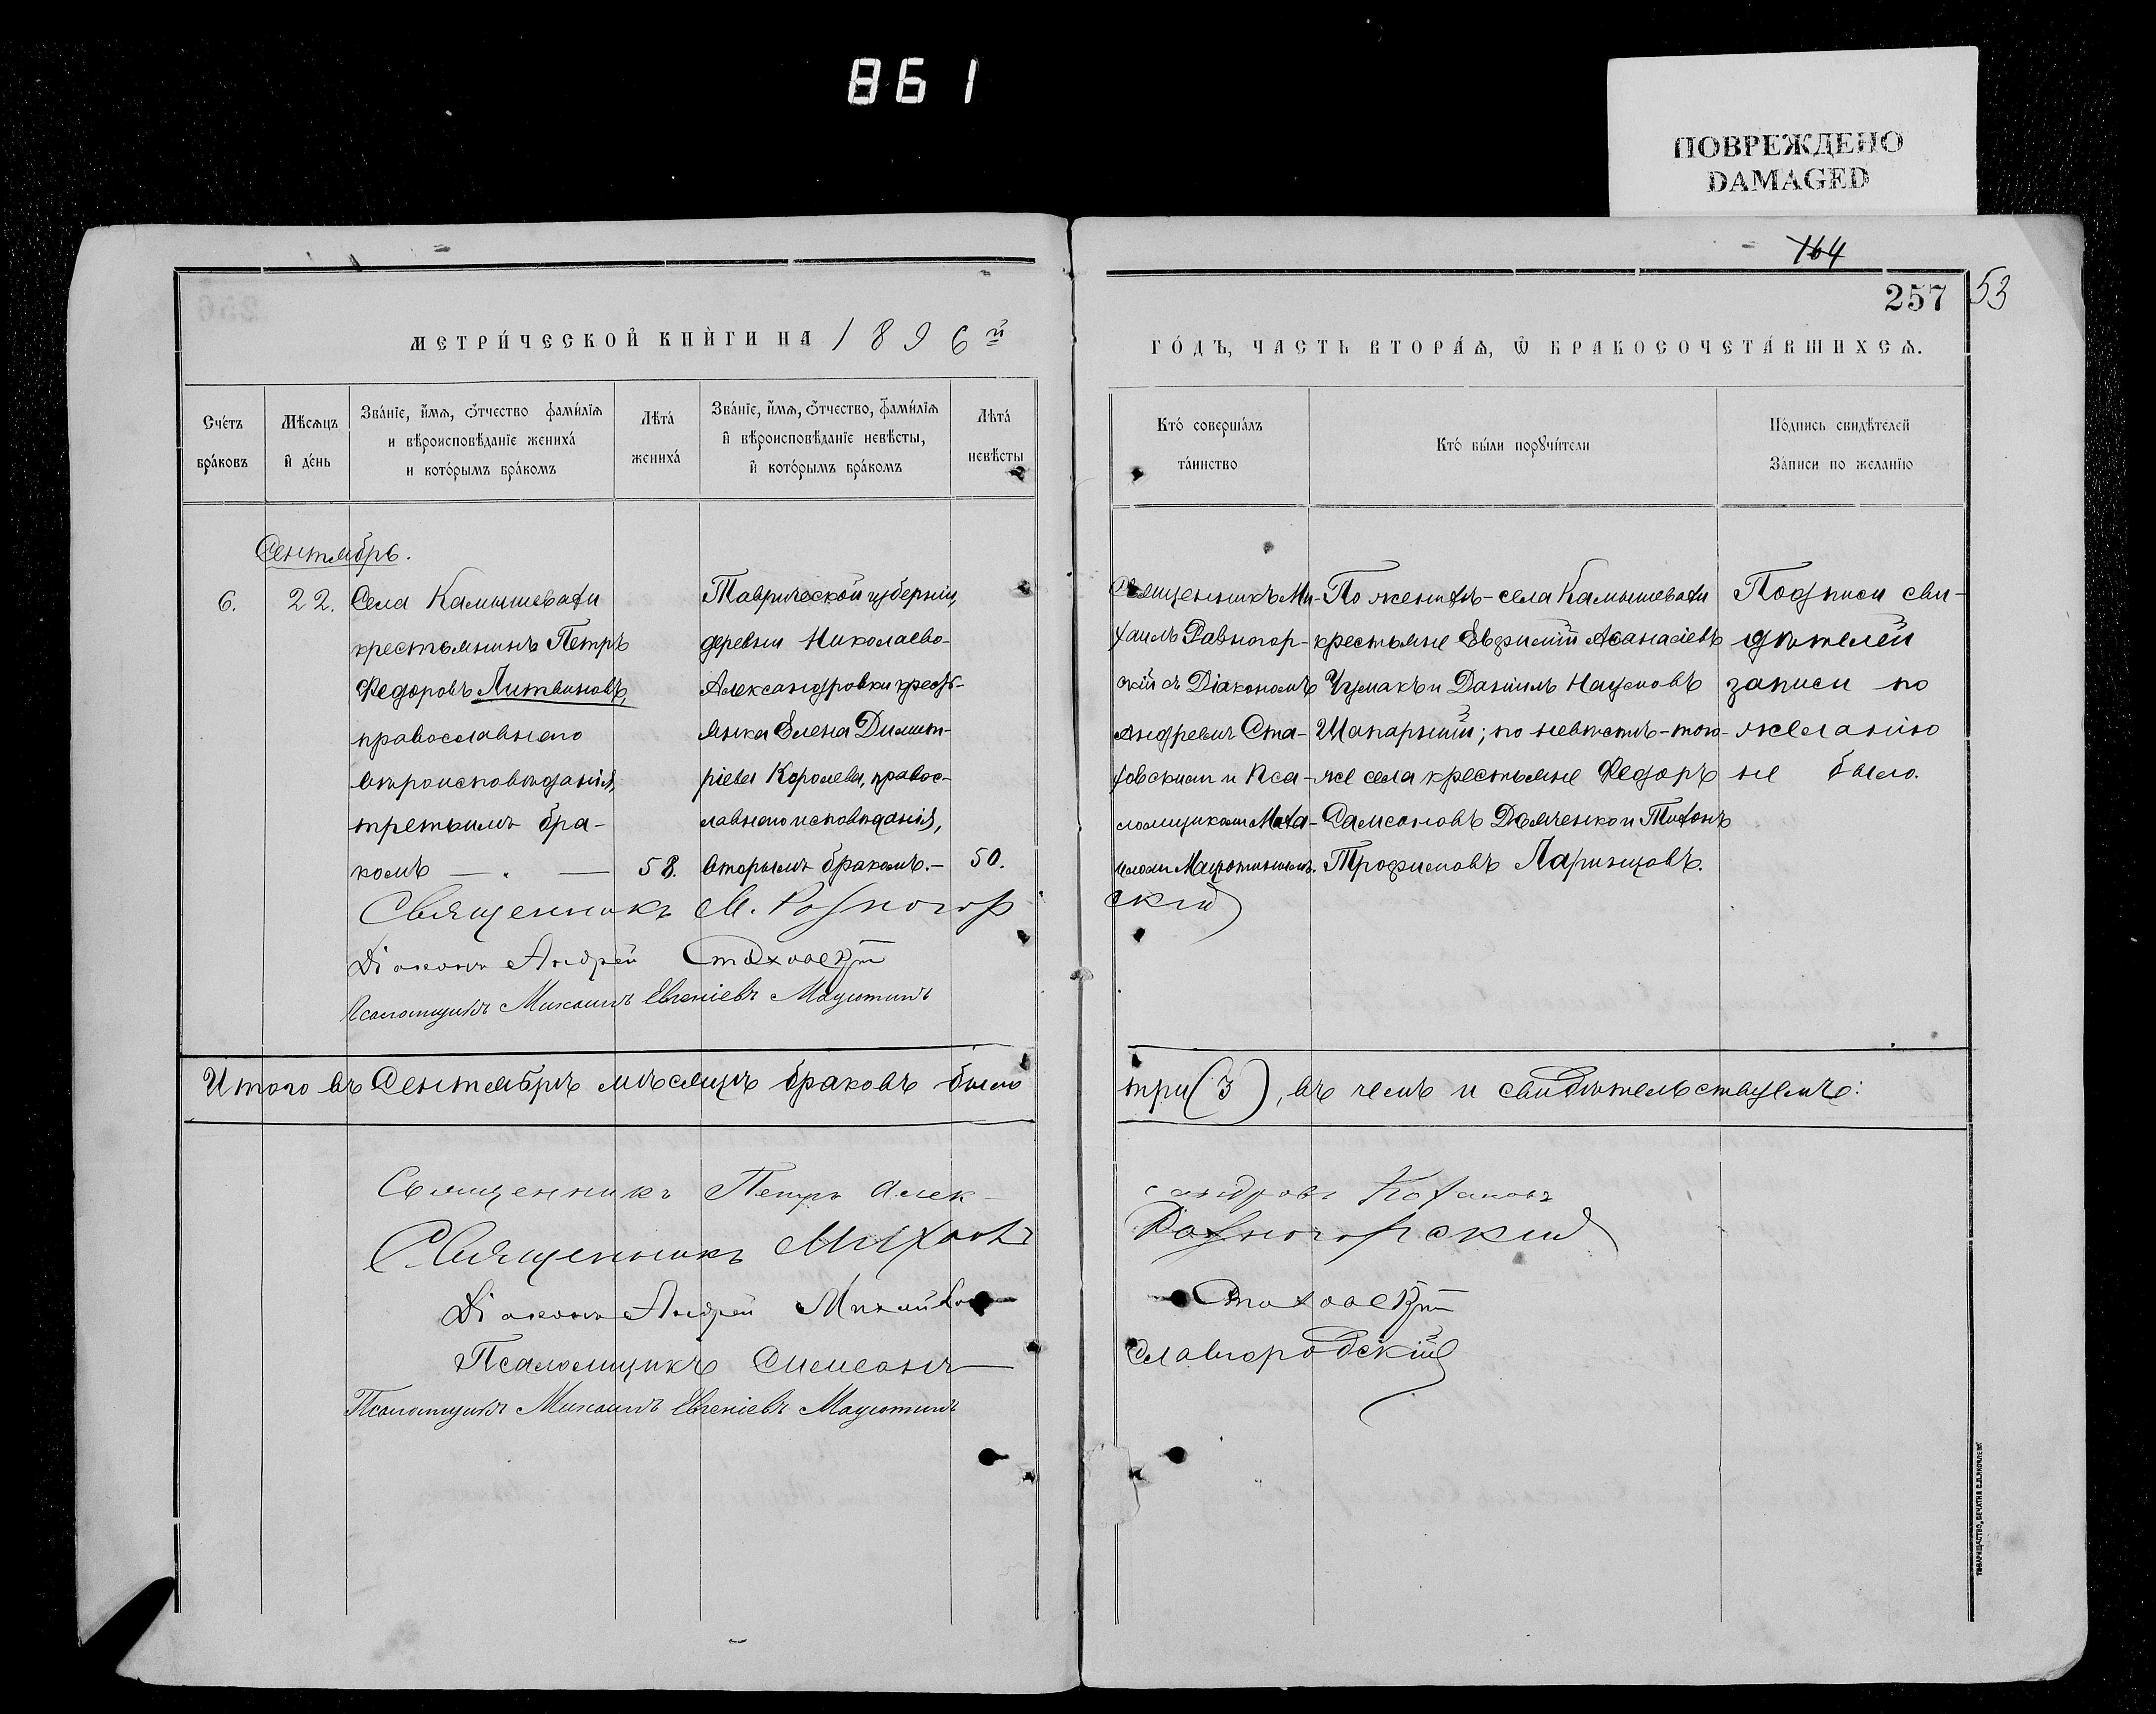 861
ПОВРЕЖДЕНО
DAMAGED
164
257
53
МЕТРИ́ЧЕСКОЙ КНЍГИ НА 1896й
ГО́ДЪ, ЧАСТЬ ВТОРА́Ѧ, Ѽ БРАКОСОЧЕТА́ВШИХСѦ.
Сче́тъ
бра́ковъ
Мѣ́сѧцъ
и҆ де́нь
Зва́нїе, и҆́мѧ, ѻ҆́тчество фами́лїѧ
и вѣроисповѣ́данїе жениха́
и кото́рымъ бра́комъ
Лѣта́
жениха́
Зва́нїе, и҆́мѧ, ѻ҆́тчество, фами́лїѧ
и҆ вѣроисповѣ́данїе невѣ́сты,
и҆ кото́рымъ бра́комъ
Лѣта́
невѣ́сты
Кто́ соверша́лъ
та́инство
Кто́ бы́ли порꙋчи́тели
По́дпись свидѣ́телей
За́писи по жела́нїю
Сентябрь.
6.
22.
Села Камышевахи
крестьянинъ Петръ
Федоровъ Литвиновъ,
православнаго
вѣроисповѣданія,
третьимъ бра-
комъ — . —
58.
Таврической губерніи,
деревни Николаево-
Александровки кресть-
янка Елена Димит-
ріева Королева, правос-
лавнаго исповѣданія,
вторымъ бракомъ.—
50.
Священникъ Ми-
хаилъ Разногор-
скій съ Діакономъ
Андреемъ Ста-
ховскимъ и Пса-
ломщикомъ Миха-
иломъ Мацютинымъ.
По женихѣ - села Камышевахи
крестьяне Евфимій Аѳанасіевъ
Чумакъ и Даніилъ Наумовъ
Шапарный; по невѣстѣ - того-
же села крестьяне Федоръ
Самсоновъ Демченко и Тихонъ
Трофимовъ Ларинцовъ.
Подписи сви-
дѣтелей
записи по
желанію
не было.
Священникъ М. Разногорскій
Діаконъ Андрей Стаховскій
Псаломщикъ Михаилъ Евгеніевъ Мацютинъ
Итого въ Сентябрѣ мѣсяцѣ браковъ было три (3), въ чемъ и свидѣтельствуемъ:
Священникъ Петръ Александровъ Кохановъ
Священникъ Михаилъ Разногорскій
Діаконъ Андрей Михайлов— Стаховскій
Псаломщикъ Симеонъ Славгородскій
Псаломщикъ Михаилъ Евгеніевъ Мацютинъ